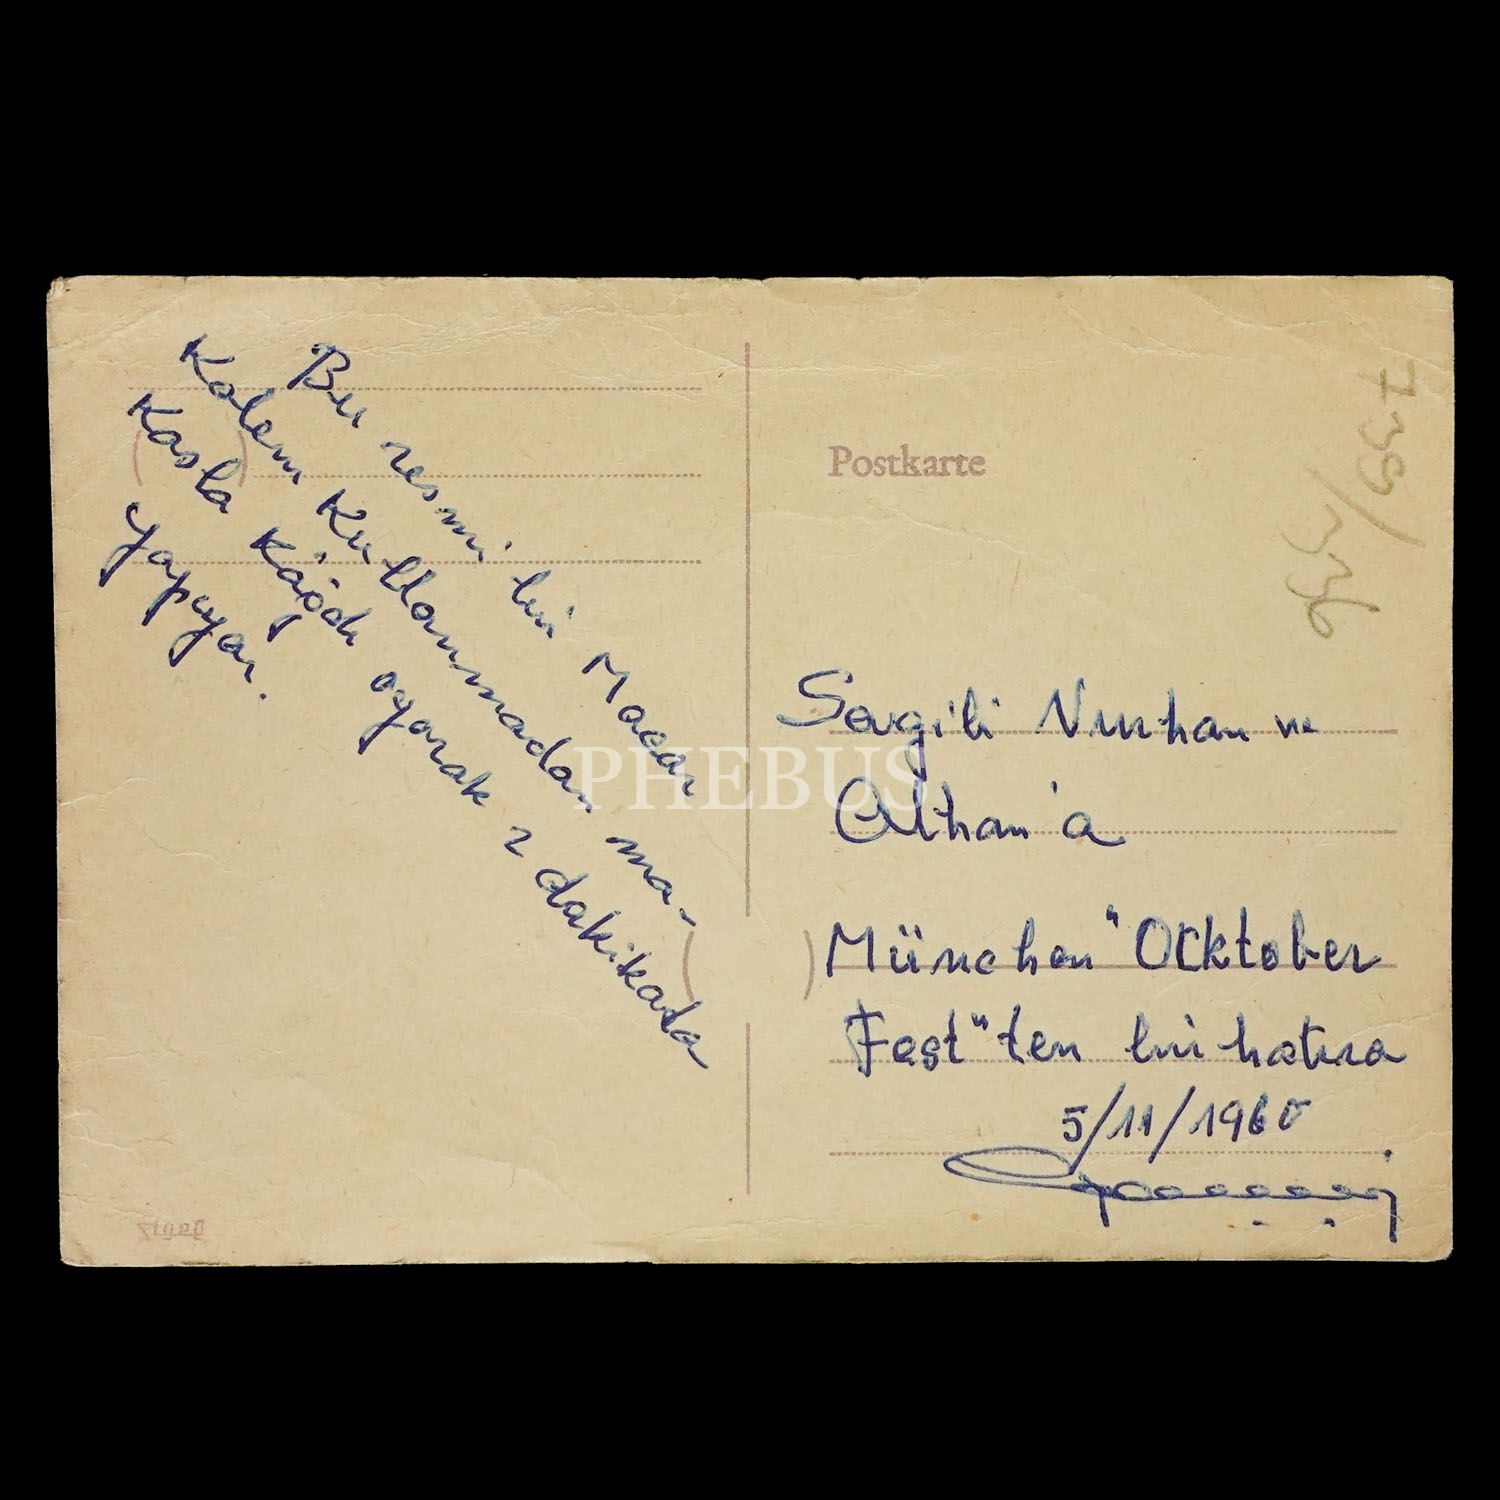 Bu resmi bir Macar
Kalem Kullanmadan ma-
Kasla Kâğıdı oyarak 2 dakikada
yapıyor.
Postkarte
739/336
Sevgili Nurhan ve
Althan'a
München "Ocktober
Fest" ten bir hatıra
5/11/1960
PHEBUS